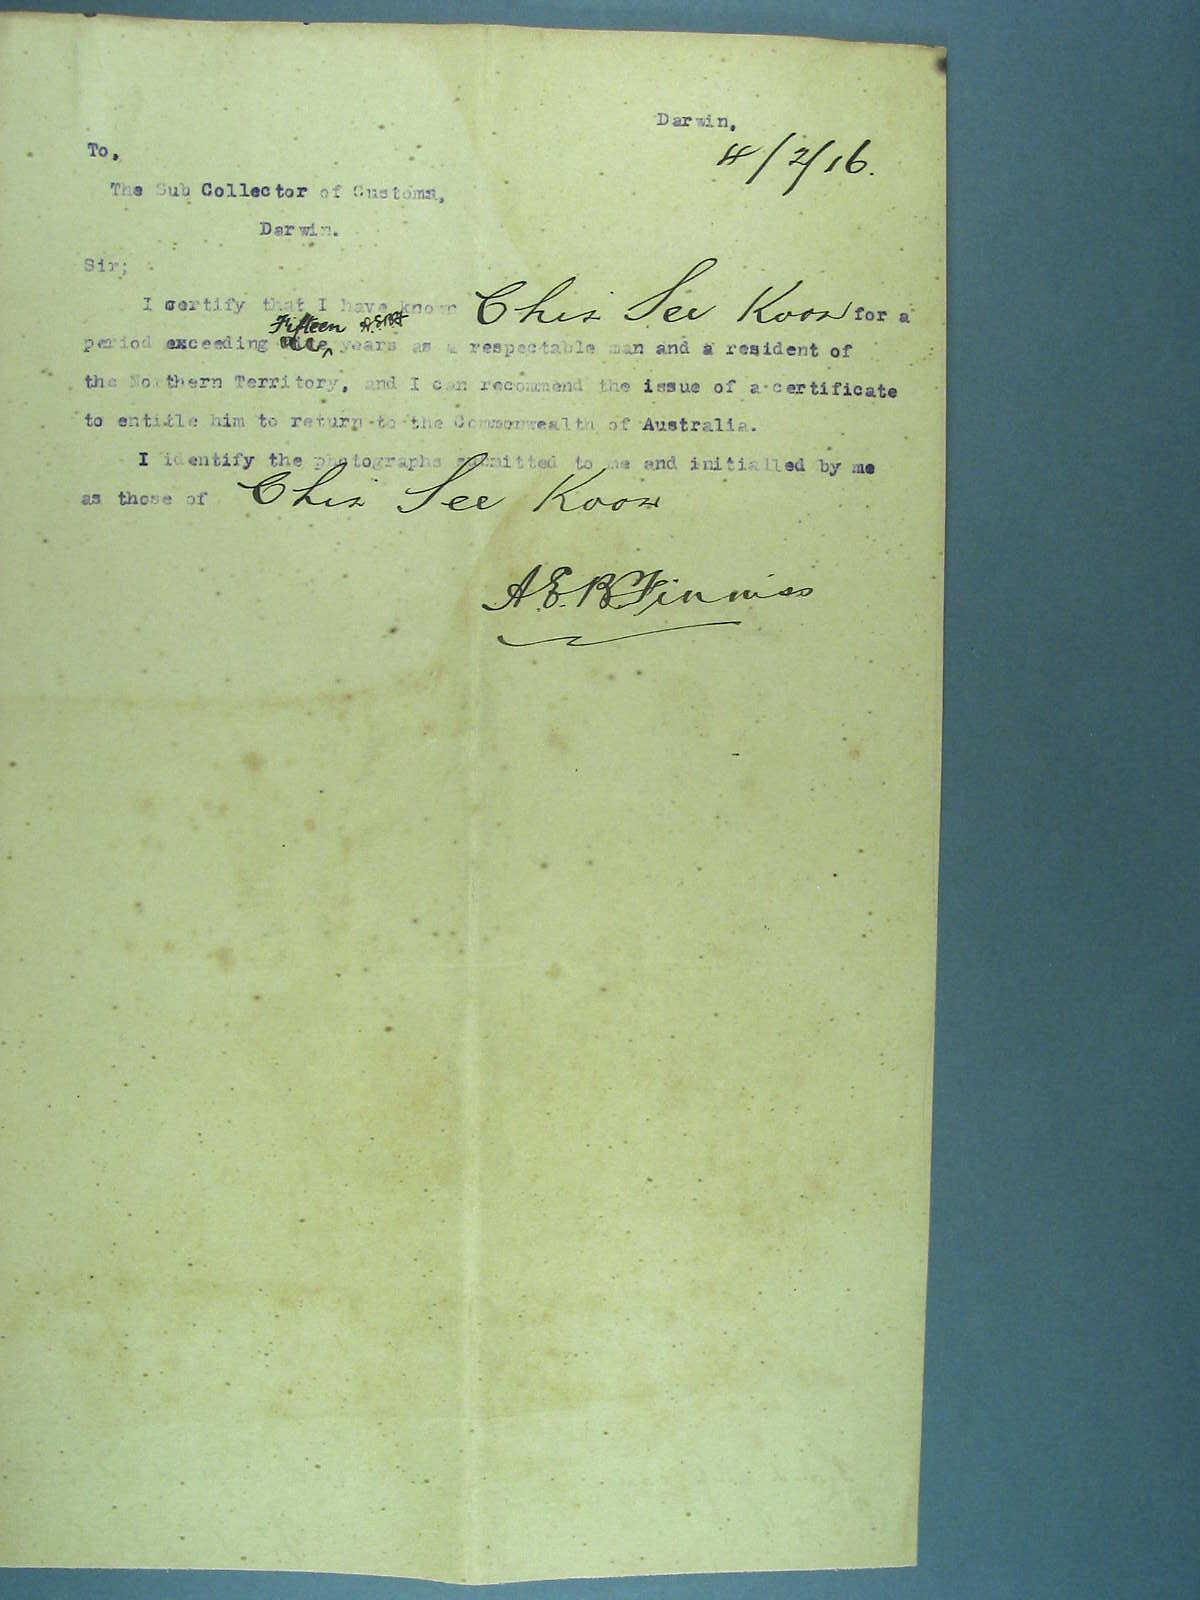 Darwin,
4/2/16.
To,
The Sub Collector of Customs,
Darwin.
Sir;
I certify that I have known Chin See Koon for a
Fifteen
period exceeding years as a respectable man and a resident of
the Northern Territory, and I can recommend the issue of a certificate
to entitle him to return to the Commonwealth of Australia.
I identify the photographs submitted to me and initialled by me
as those of Chin See Koon
A.E.B. Finniss